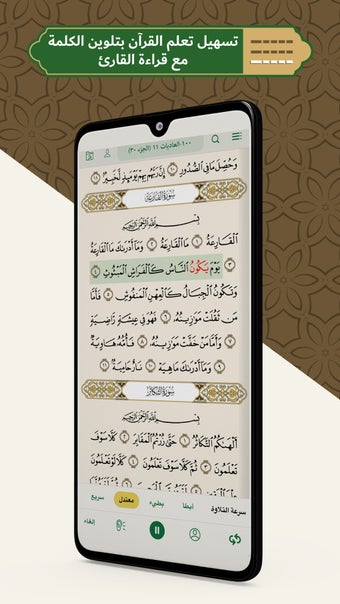 تسهيل تعلم القرآن بتلوين الكلمة
مع قراءة القارئ
١٠٠-العاديات ١١ (الجزء ٣٠)
وَحُصِّلَ مَا فِي الصُّدُورِ ١٠ إِنَّ رَبَّهُم بِهِمْ يَوْمَئِذٍ لَّخَبِيرٌ ١١
سُورَةُ القَارِعَة
بِسْمِ اللَّهِ الرَّحْمَٰنِ الرَّحِيمِ
الْقَارِعَةُ ١ مَا الْقَارِعَةُ ٢ وَمَا أَدْرَىٰكَ مَا الْقَارِعَةُ
٣ يَوْمَ يَكُونُ النَّاسُ كَالْفَرَاشِ الْمَبْثُوثِ ٤
وَتَكُونُ الْجِبَالُ كَالْعِهْنِ الْمَنفُوشِ ٥ فَأَمَّا
مَن ثَقُلَتْ مَوَٰزِينُهُۥ ٦ فَهُوَ فِي عِيشَةٍ رَّاضِيَةٍ
٧ وَأَمَّا مَنْ خَفَّتْ مَوَٰزِينُهُۥ ٨ فَأُمُّهُۥ هَاوِيَةٌ
٩ وَمَا أَدْرَىٰكَ مَا هِيَهْ ١٠ نَارٌ حَامِيَةٌ ١١
سُورَةُ التَّكَاثُر
بِسْمِ اللَّهِ الرَّحْمَٰنِ الرَّحِيمِ
أَلْهَىٰكُمُ التَّكَاثُرُ ١ حَتَّىٰ زُرْتُمُ الْمَقَابِرَ ٢ كَلَّا سَوْفَ
تَعْلَمُونَ ٣ ثُمَّ كَلَّا سَوْفَ تَعْلَمُونَ ٤ كَلَّا لَوْ تَعْلَمُونَ
سرعة التلاوة أبطأ بطيء معتدل سريع
إلغاء